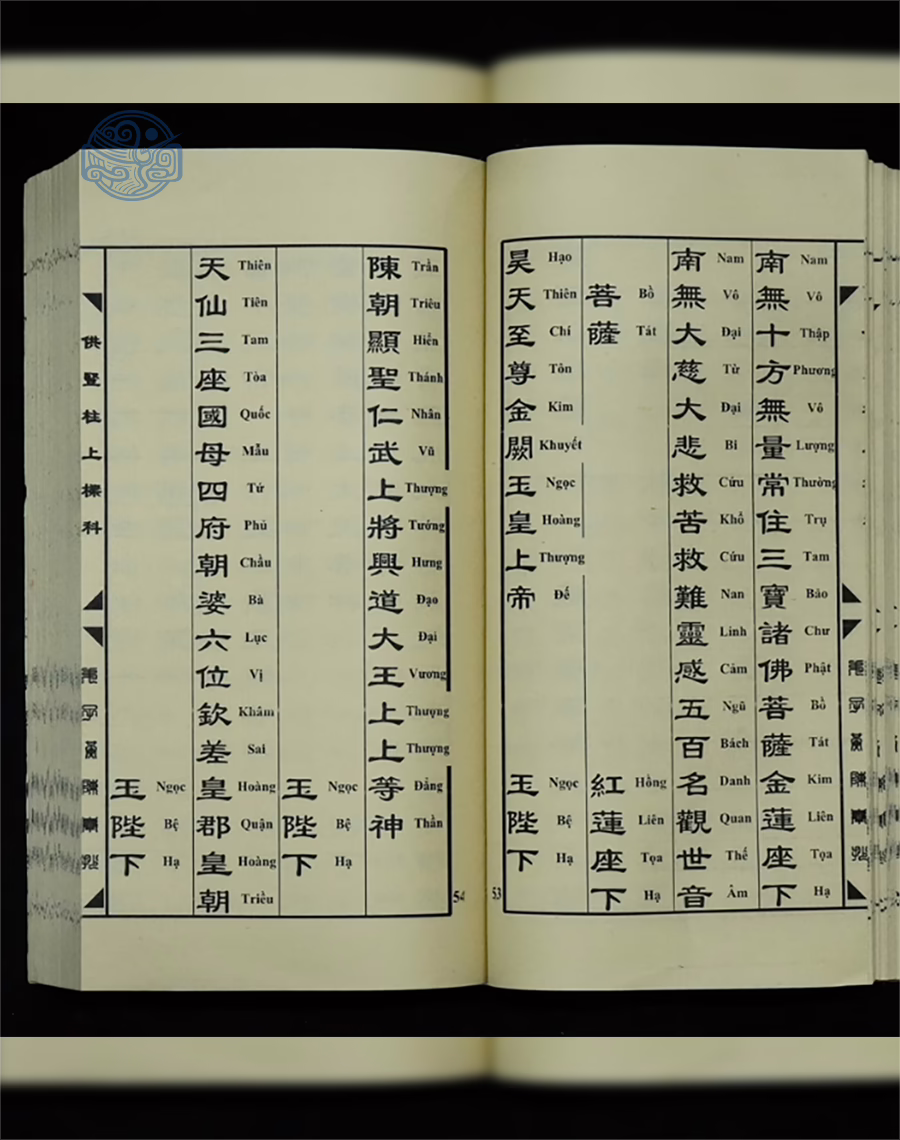 南無十方無量常住三寶諸佛菩薩金蓮座下
Nam Vô Thập Phương Vô Lượng Thường Trụ Tam Bảo Chư Phật Bồ Tát Kim Liên Tọa Hạ
南無大慈大悲救苦救難靈感五百名觀世音
Nam Vô Đại Từ Đại Bi Cứu Khổ Cứu Nan Linh Cảm Ngũ Bách Danh Quan Thế Âm
菩薩 紅蓮座下
Bồ Tát Hồng Liên Tọa Hạ
昊天至尊金闕玉皇上帝 玉陛下
Hạo Thiên Chí Tôn Kim Khuyết Ngọc Hoàng Thượng Đế Ngọc Bệ Hạ
53
陳朝顯聖仁武上將興道大王上上等神
Trần Triêu Hiển Thánh Nhân Vũ Thượng Tướng Hưng Đạo Đại Vương Thượng Thượng Đẳng Thần
玉陛下
Ngọc Bệ Hạ
天仙三座國母四府朝婆六位欽差皇郡皇朝
Thiên Tiên Tam Tòa Quốc Mẫu Tứ Phủ Chầu Bà Lục Vị Khâm Sai Hoàng Quận Hoàng Triều
玉陛下
Ngọc Bệ Hạ
供豎柱上樑科
54